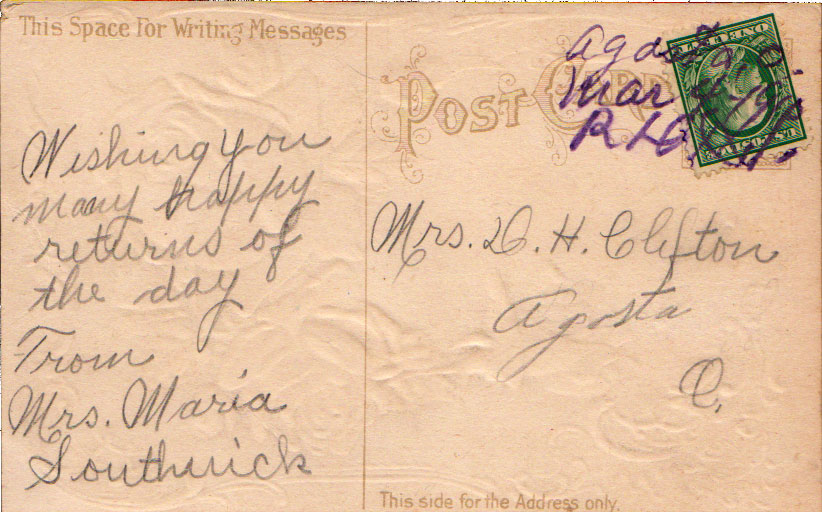 This Space For Writing Messages
POST CARD
Agosta, O.
Mar
ONE CENT
Wishing you
many happy
returns of
the day
From
Mrs. Maria
Southwick
Mrs. D. H. Clifton
Agosta
O.
This side for the Address only.